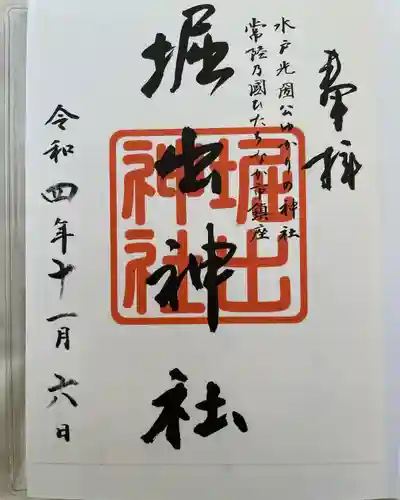 奉拝
水戸光圀公ゆかりの神社
常陸乃國ひたちなか市鎮座
堀出神社
堀出
神社
令和四年十一月六日